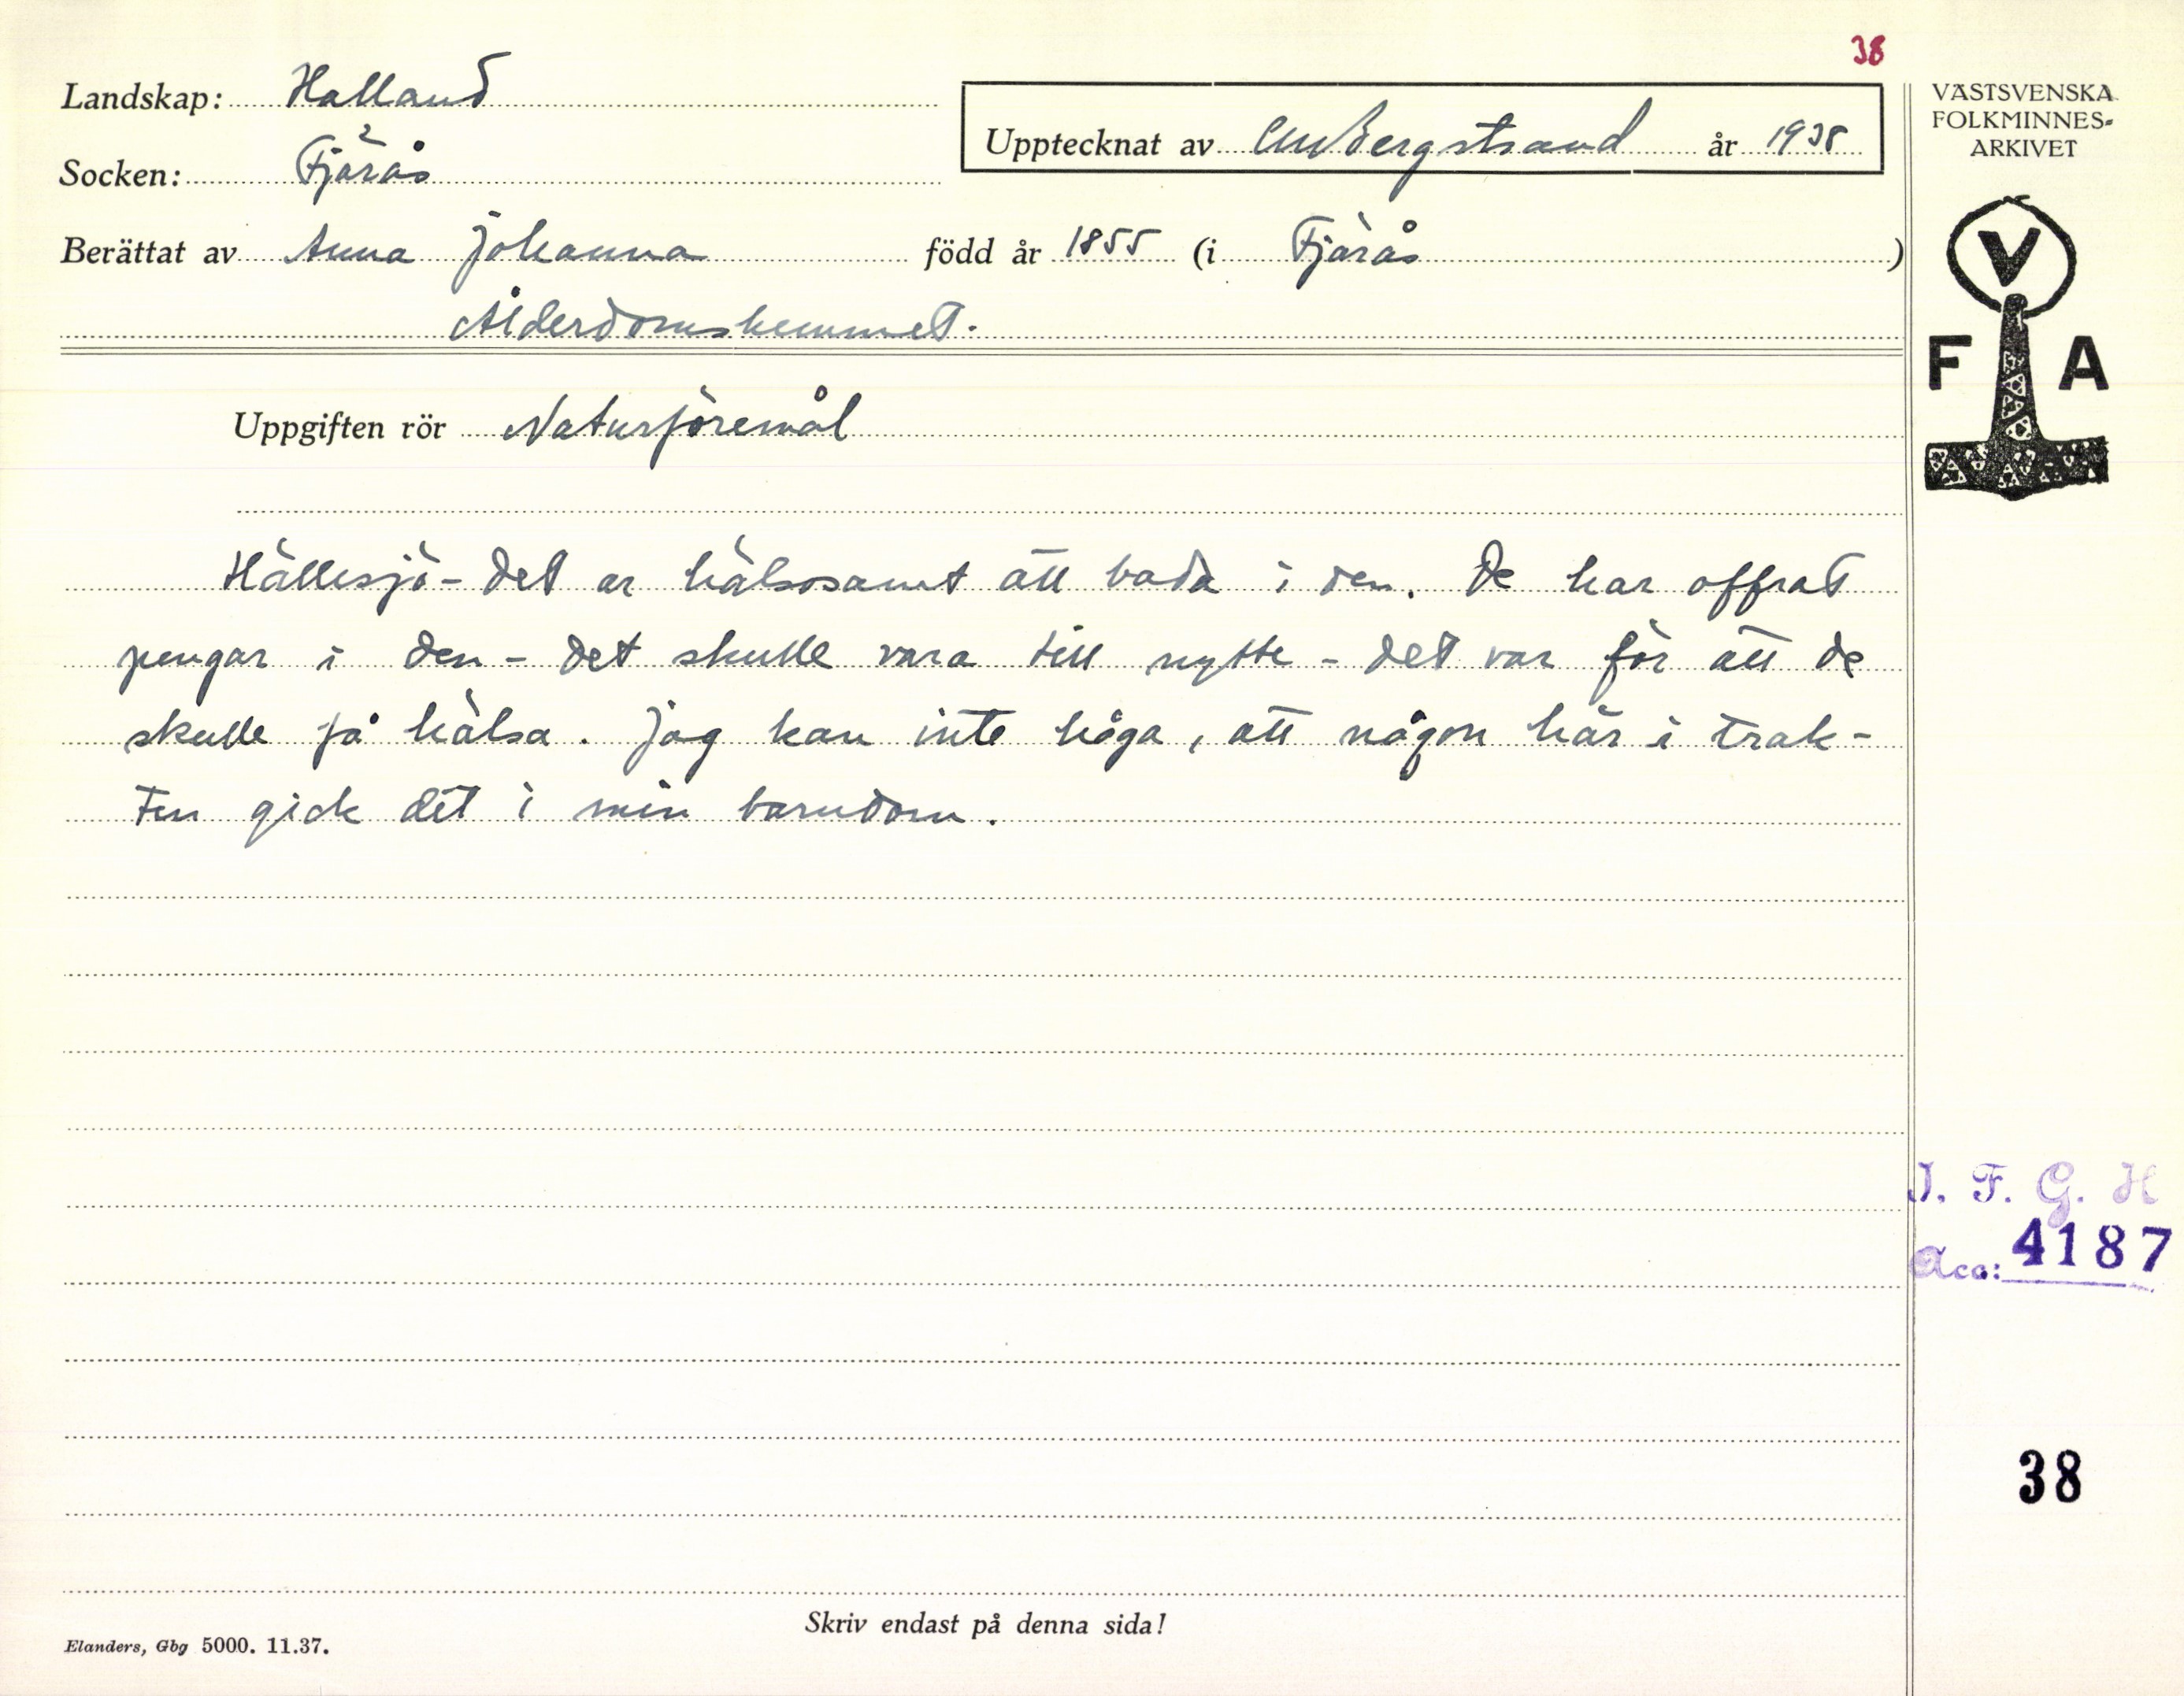 38
Landskap: Halland
Upptecknat av CM Bergstrand år 1938
Socken: Fjärås
Berättat av Anna Johanna född år 1855 (i Fjärås)
Ålderdomshemmet.
VÄSTSVENSKA
FOLKMINNES-
ARKIVET
V
F A
Uppgiften rör Naturföremål
Hällesjö - det är hälsosamt att bada i den. De har offrat
pengar i den - det skulle vara till nytte - det var för att de
skulle få hälsa. Jag kan inte håga, att någon här i trak-
ten gick dit i min barndom.
I. F. G. H
Acc: 4187
38
Skriv endast på denna sida!
Elanders, Gbg 5000. 11.37.